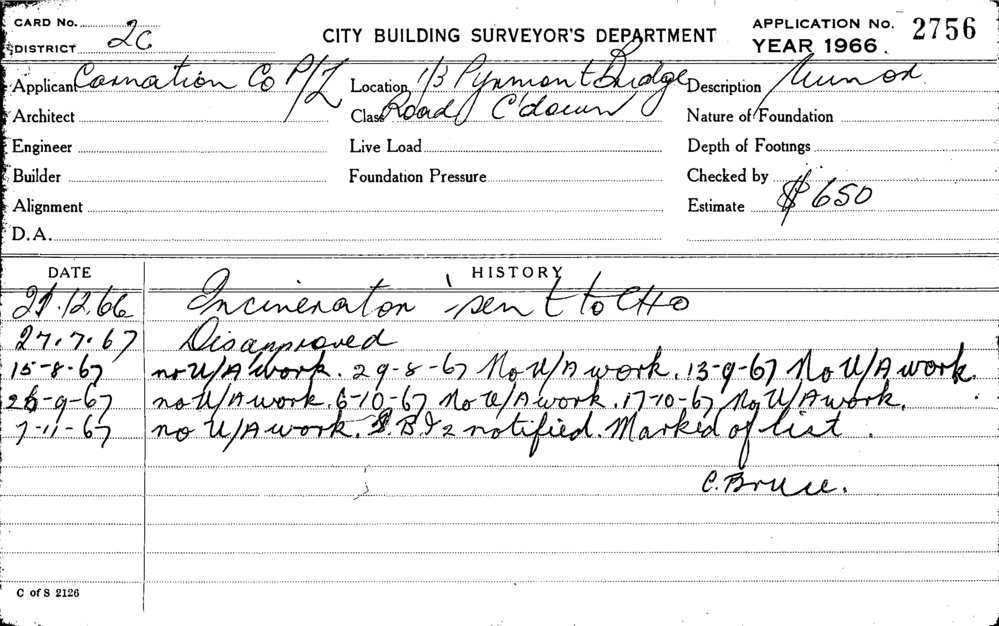 CARD No.
DISTRICT 2C
CITY BUILDING SURVEYOR'S DEPARTMENT
APPLICATION No. 2756
YEAR 1966.
Applicant Carnation Co P/L Location 1/3 Pyrmont Bridge Description Minor
Architect Class Road C'down Nature of Foundation
Engineer Live Load Depth of Footings
Builder Foundation Pressure Checked by
Alignment Estimate $650
D.A.
DATE HISTORY
21.12.66 Incinerator sent to CHO
27.7.67 Disapproved
15-8-67 no U/A work. 29-8-67 No U/A work. 13-9-67 No U/A work.
26-9-67 no U/A work. 6-10-67 No U/A work. 17-10-67 No U/A work.
7-11-67 no U/A work. notified. Marked of list.
C. Bruce.
C of S 2126